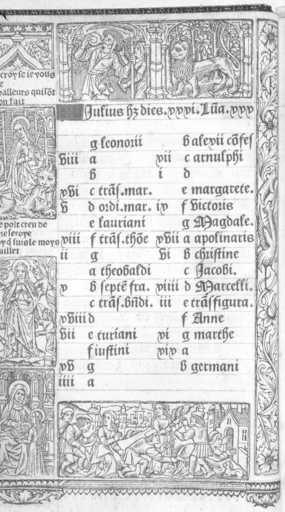 croy se ie vous
e
valleurs quisōt
on fait
e poit creu de
me seroye
y q̄ suis le moys
uillet
Julius hȝ dies. xxxi. Lūa. xxx
g leonorii
viii a
b
xvi c trās. mar.
v d ordi. mar.
e lauriani
xiii f trās. thōe
ii g
a theobaldi
x b septē fra.
c trās. bn̄di.
xviii d
vii e turiani
f iustini
xv g
iiii a
b alexii cōfes
xii c arnulphi
i d
e margarete.
ix f victoris
g Magdale.
xvii a apolinaris
vi b christine
c Jacobi.
xiiii d Marcelli.
iii e trāsfigura.
f Anne
xi g marthe
xix a
b germani